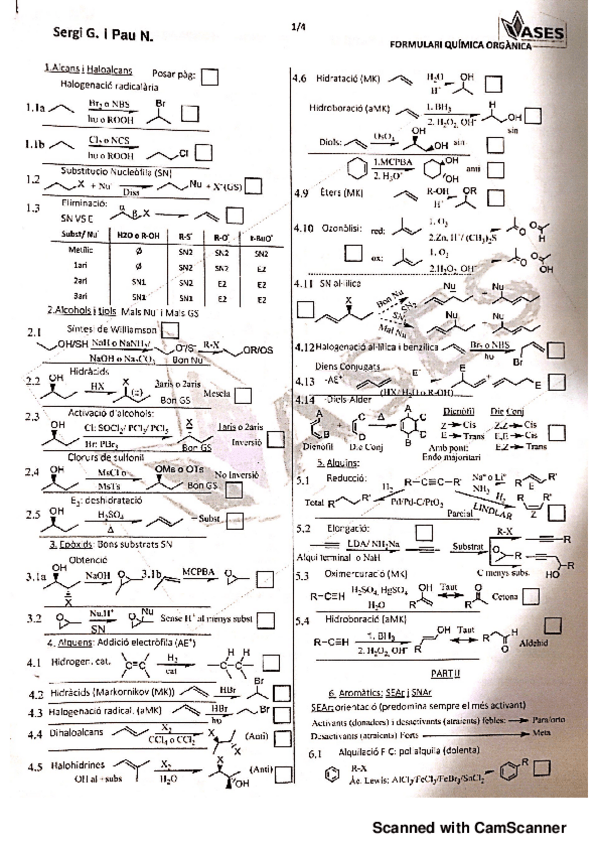 Sergi G. i Pau N.
1/4
VASES
FORMULARI QUÍMICA ORGÀNICA
1.Alcans i Haloalcans
Posar pàg:
Halogenació radicalària
1.1a
Br₂ o NBS
hυ o ROOH
Br
1.1b
Cl₂ o NCS
hυ o ROOH
Cl
Substitució Nucleòfila (SN)
1.2
X + Nu
Nu + X⁻(GS)
1.3
Eliminació:
SN VS E
α
β
X
Subst/ Nu⁻
H2O o R-OH
R-S⁻
R-O⁻
t-BuO⁻
Metílic
Ø
SN2
SN2
SN2
1ari
Ø
SN2
SN2
E2
2ari
SN1
SN2
E2
E2
3ari
SN1
SN2
E2
E2
2.Alcohols i tiols
Mals Nu⁻ i Mals GS
2.1
Síntesi de Williamson
OH/SH
NaH o NaNH₂/
NaOH o Na₂CO₃
O⁻/S⁻
Bon Nu
R-X
OR/OS
Hidràcids
2.2
OH
HX
X
Bon GS
3aris o 2aris
Mescla
2.3
Activació d'alcohols:
OH
Cl: SOCl₂/ PCl₃/ PCl₅
Br: PBr₃
X
Bon GS
1aris o 2aris
Inversió
Clorurs de sulfonil
2.4
OH
MsCl o
OMs o OTs
Bon GS
No Inversió
E₂: deshidratació
2.5
OH
H₂SO₄
Δ
3. Epòxids: Bons substrats SN
Obtenció
3.1a
OH
X
NaOH
O
3.1b
MCPBA
O
3.2
O
Nu,H⁺
SN
Nu
Sense H⁺ al menys subst
4. Alquens: Addició electròfila (AE⁺)
4.1
Hidrogen. cat.
C=C
H₂
cat
H H
C-C
4.2
Hidràcids (Markornikov (MK))
HBr
Br
4.3
Halogenació radical. (aMK)
HBr
hυ
Br
4.4
Dihaloalcans
X₂
X
X
(Anti)
4.5
Halohidrines
OH al +subs
X₂
H₂O
X
OH
(Anti)
4.6
Hidratació (MK)
H₂O
H⁺
OH
Hidroboració (aMK)
1. BH₃
2. H₂O₂, OH⁻
H
OH
sin
Diols:
OsO₄
OH
OH
sin
1.MCPBA
2. H₃O⁺
OH
OH
anti
4.9
Èters (MK)
R-OH
H⁺
OR
4.10
Ozonòlisi:
red:
1. O₃
2.Zn, H⁺/ (CH₃)₂S
O
O
H
ox:
1. O₃
2.H₂O₂, OH⁻
O
O
OH
4.11
SN al·lílica
X
Bon Nu
SN2
Mal Nu
Nu
Nu
Nu
Nu
4.12
Halogenació al·lílica i benzílica
Br₂ o NBS
hυ
Br
Diens Conjugats
4.13
-AE⁺
E⁻
(HX/ H₂O o R-OH)
E
+
E
4.14
-Diels Alder
A
B
Dienòfil
+
C
D
Die Conj
Δ
A
C
B
D
Dienòfil
Z → Cis
E → Trans
Die Conj
Z,Z → Cis
E,E → Cis
E,Z → Trans
Amb pont:
Endo majoritari
5. Alquins:
5.1
Reducció:
Total
R
R
H₂
Pd/Pd-C/PtO₂
R-C≡C-R
Na⁰ o Li⁰
NH₃
H₂
LINDLAR
Parcial
R
E
R
R
Z
R
5.2
Elongació:
LDA/ NH₂Na
o NaH
Alquí terminal
Substrat
R-X
R
O
R
C menys subs.
R
HO
5.3
Oximercuració (MK)
R-C≡H
H₂SO₄, HgSO₄
H₂O
OH
R
Taut
O
R
Cetona
5.4
Hidroboració (aMK)
R-C≡H
1. BH₃
2. H₂O₂, OH⁻
OH
R
Taut
O
R
H
Aldehid
PART II
6. Aromàtics: SEAr i SNAr
SEAr: orientació (predomina sempre el més activant)
Activants (donadors) i desactivants (atraients) febles: → Para/orto
Desactivants (atraients) Forts → Meta
6.1
Alquilació F C: pol alquila (dolenta)
R-X
Àc. Lewis: AlCl₃/FeCl₃/FeBr₃/SnCl₂
R
Scanned with CamScanner